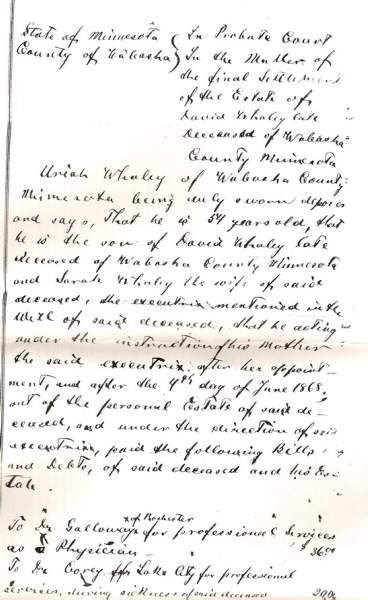 State of Minnesota
County of Wabasha
In Probate Court
In the Matter of
the final Settlement
of the Estate of
David Whaley late
Deceased of Wabasha
County Minnesota
Uriah Whaley of Wabasha County
Minnesota being duly sworn deposes
and says, That he is 54 years old, that
he is the son of David Whaley late
deceased of Wabasha County Minnesota
and Sarah Whaley the wife of said
deceased, the executrix mentioned in the
Will of said deceased, that he acting
under the instruction of his Mother
the said executrix after her appoint-
ment, and after the 9th day of June 1868,
out of the personal Estate of said de-
ceased, and under the direction of said
executrix, paid the following Bills
and Debts, of said deceased and his Es-
tate.
To Dr Galloway of Rochester for professional Services
as a Physician $36.00
To Dr Corey of Lake City for professional
services, during sickness of said deceased